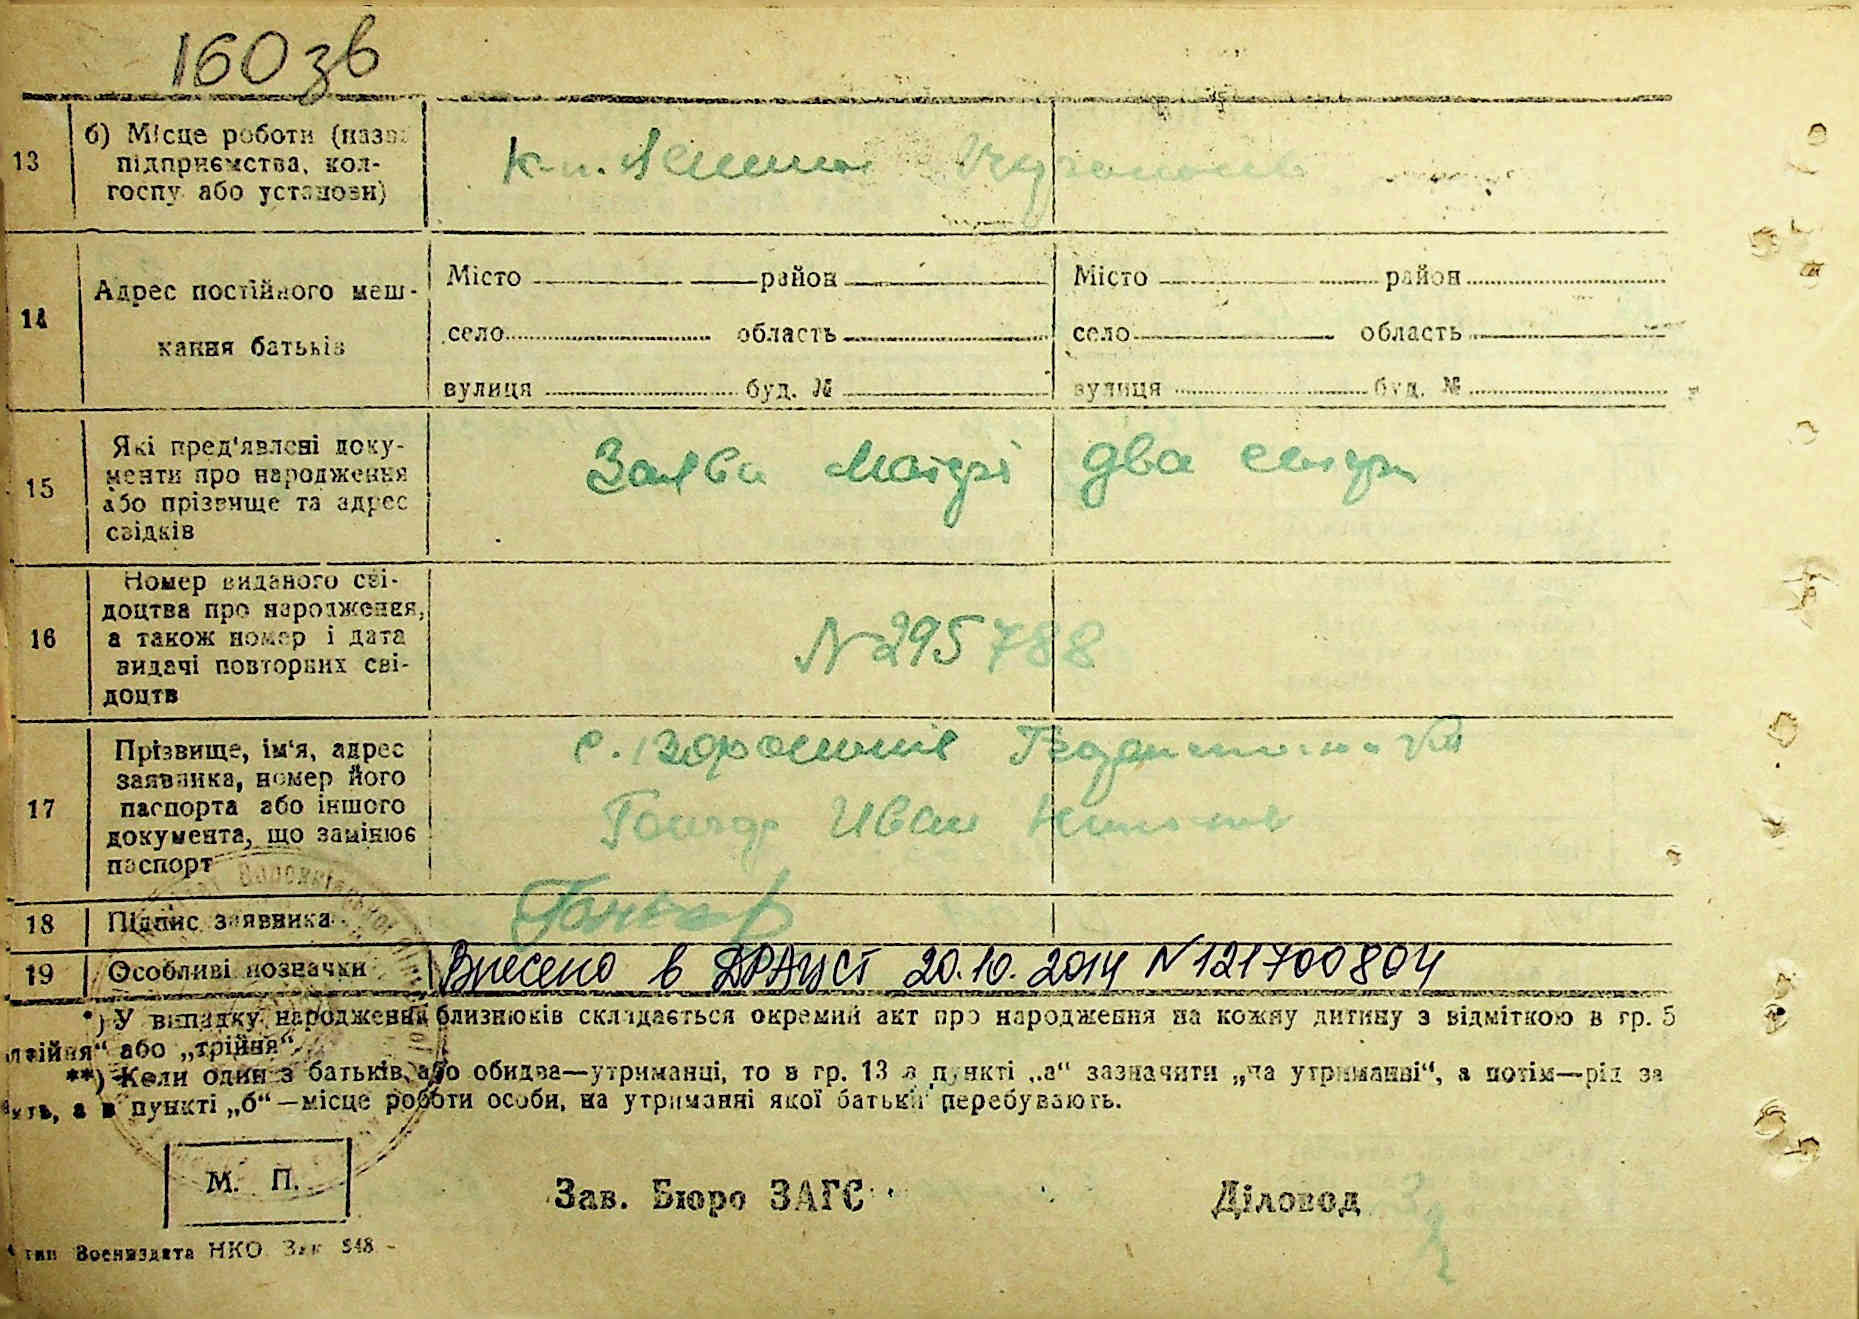 160 зв
13 б) Місце роботи (назва
підприємства, кол-
госпу або установи)
14 Адрес постійного меш-
кання батьків
Місто район Місто район
село область село область
вулиця буд. № вулиця буд. №
15 Які пред'явлені доку-
менти про народження
або прізвище та адрес
свідків
Заява матері два
16 Номер виданого сві-
доцтва про народження,
а також номер і дата
видачі повторних сві-
доцтв
N 295788
17 Прізвище, ім'я, адрес
заявника, номер його
паспорта або іншого
документа, що замінює
паспорт
с.
Гончар Иван
18 Підпис заявника
Гончар
19 Особливі позначки Внесено в ДРАЦСГ 20.10.2014 N 121700804
*) У випадку народження близнюків складається окремий акт про народження на кожну дитину з відміткою в гр. 5
або „трійня“.
**) Коли один з батьків, або обидва—утриманці, то в гр. 13 в пункті „а“ зазначити „на утриманні“, а потім—рід за
а в пункті „б“—місце роботи особи, на утриманні якої батьки перебувають.
М. П.
Зав. Бюро ЗАГС Діловод
тип Воениздата НКО Зак 548